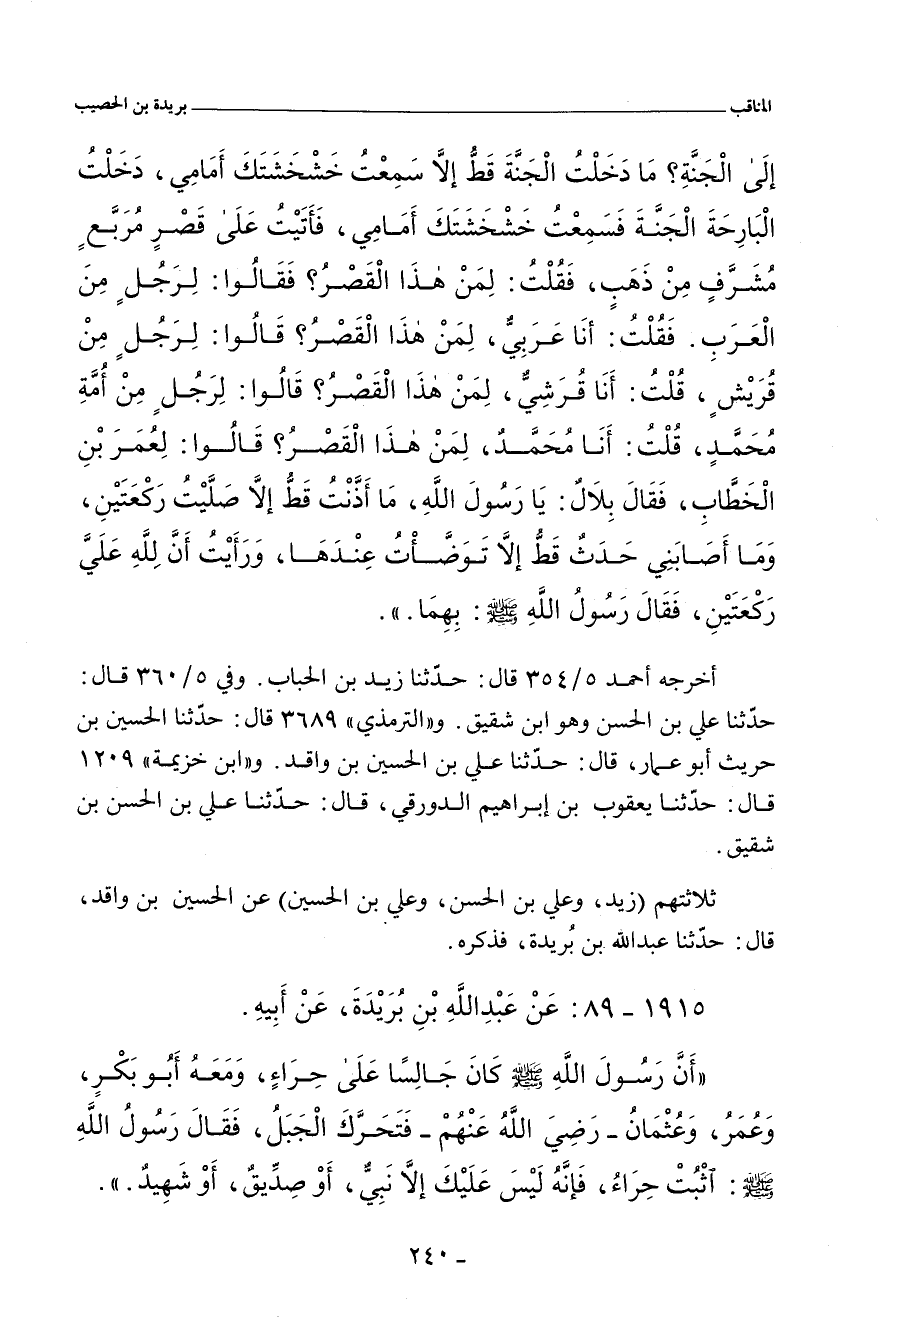 المناقب بريدة بن الحصيب
إِلَىٰ الْجَنَّةِ؟ مَا دَخَلْتُ الْجَنَّةَ قَطُّ إِلاَّ سَمِعْتُ خَشْخَشَتَكَ أَمَامِي، دَخَلْتُ
الْبَارِحَةَ الْجَنَّةَ فَسَمِعْتُ خَشْخَشَتَكَ أَمَامِي، فَأَتَيْتُ عَلَىٰ قَصْرٍ مُرَبَّعٍ
مُشَرَّفٍ مِنْ ذَهَبٍ، فَقُلْتُ: لِمَنْ هٰذَا الْقَصْرُ؟ فَقَالُوا: لِرَجُلٍ مِنَ
الْعَرَبِ. فَقُلْتُ: أَنَا عَرَبِيٌّ، لِمَنْ هٰذَا الْقَصْرُ؟ قَالُوا: لِرَجُلٍ مِنْ
قُرَيْشٍ، قُلْتُ: أَنَا قُرَشِيٌّ، لِمَنْ هٰذَا الْقَصْرُ؟ قَالُوا: لِرَجُلٍ مِنْ أُمَّةِ
مُحَمَّدٍ، قُلْتُ: أَنَا مُحَمَّدٌ، لِمَنْ هٰذَا الْقَصْرُ؟ قَالُوا: لِعُمَرَ بْنِ
الْخَطَّابِ، فَقَالَ بِلَالٌ: يَا رَسُولَ اللَّهِ، مَا أَذَّنْتُ قَطُّ إِلاَّ صَلَّيْتُ رَكْعَتَيْنِ،
وَمَا أَصَابَنِي حَدَثٌ قَطُّ إِلاَّ تَوَضَّأْتُ عِنْدَهَا، وَرَأَيْتُ أَنَّ لِلَّهِ عَلَيَّ
رَكْعَتَيْنِ، فَقَالَ رَسُولُ اللَّهِ ﷺ: بِهِمَا.».
أخرجه أحمد ٣٥٤/٥ قال: حدّثنا زيد بن الحباب. وفي ٣٦٠/٥ قال:
حدّثنا علي بن الحسن وهو ابن شقيق. و«الترمذي» ٣٦٨٩ قال: حدّثنا الحسين بن
حريث أبو عمار، قال: حدّثنا علي بن الحسين بن واقد. و«ابن خزيمة» ١٢٠٩
قال: حدّثنا يعقوب بن إبراهيم الدورقي، قال: حدّثنا علي بن الحسن بن
شقيق.
ثلاثتهم (زيد، وعلي بن الحسن، وعلي بن الحسين) عن الحسين بن واقد،
قال: حدّثنا عبدالله بن بُريدة، فذكره.
١٩١٥ - ٨٩: عَنْ عَبْدِاللَّهِ بْنِ بُرَيْدَةَ، عَنْ أَبِيهِ.
«أَنَّ رَسُولَ اللَّهِ ﷺ كَانَ جَالِسًا عَلَىٰ حِرَاءٍ، وَمَعَهُ أَبُو بَكْرٍ،
وَعُمَرُ، وَعُثْمَانُ - رَضِيَ اللَّهُ عَنْهُمْ - فَتَحَرَّكَ الْجَبَلُ، فَقَالَ رَسُولُ اللَّهِ
ﷺ: ٱثْبُتْ حِرَاءُ، فَإِنَّهُ لَيْسَ عَلَيْكَ إِلاَّ نَبِيٌّ، أَوْ صِدِّيقٌ، أَوْ شَهِيدٌ.».
- ٢٤٠